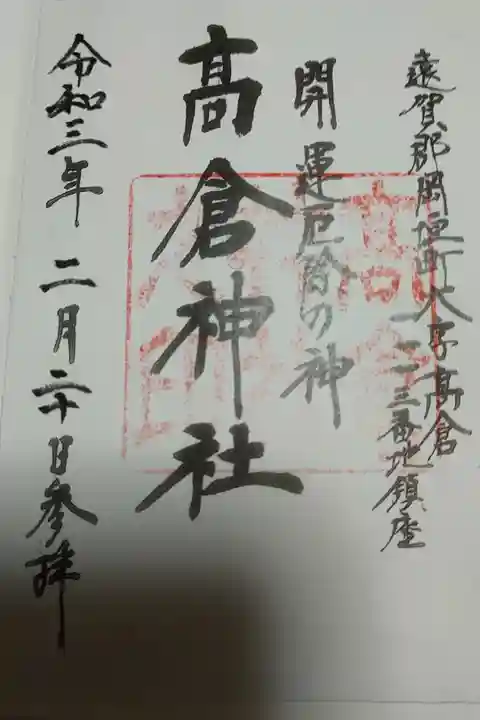 遠賀郡岡垣町大字高倉
一一一三番地鎮座
開運厄除の神
髙倉神社
令和三年 二月二十日参拝